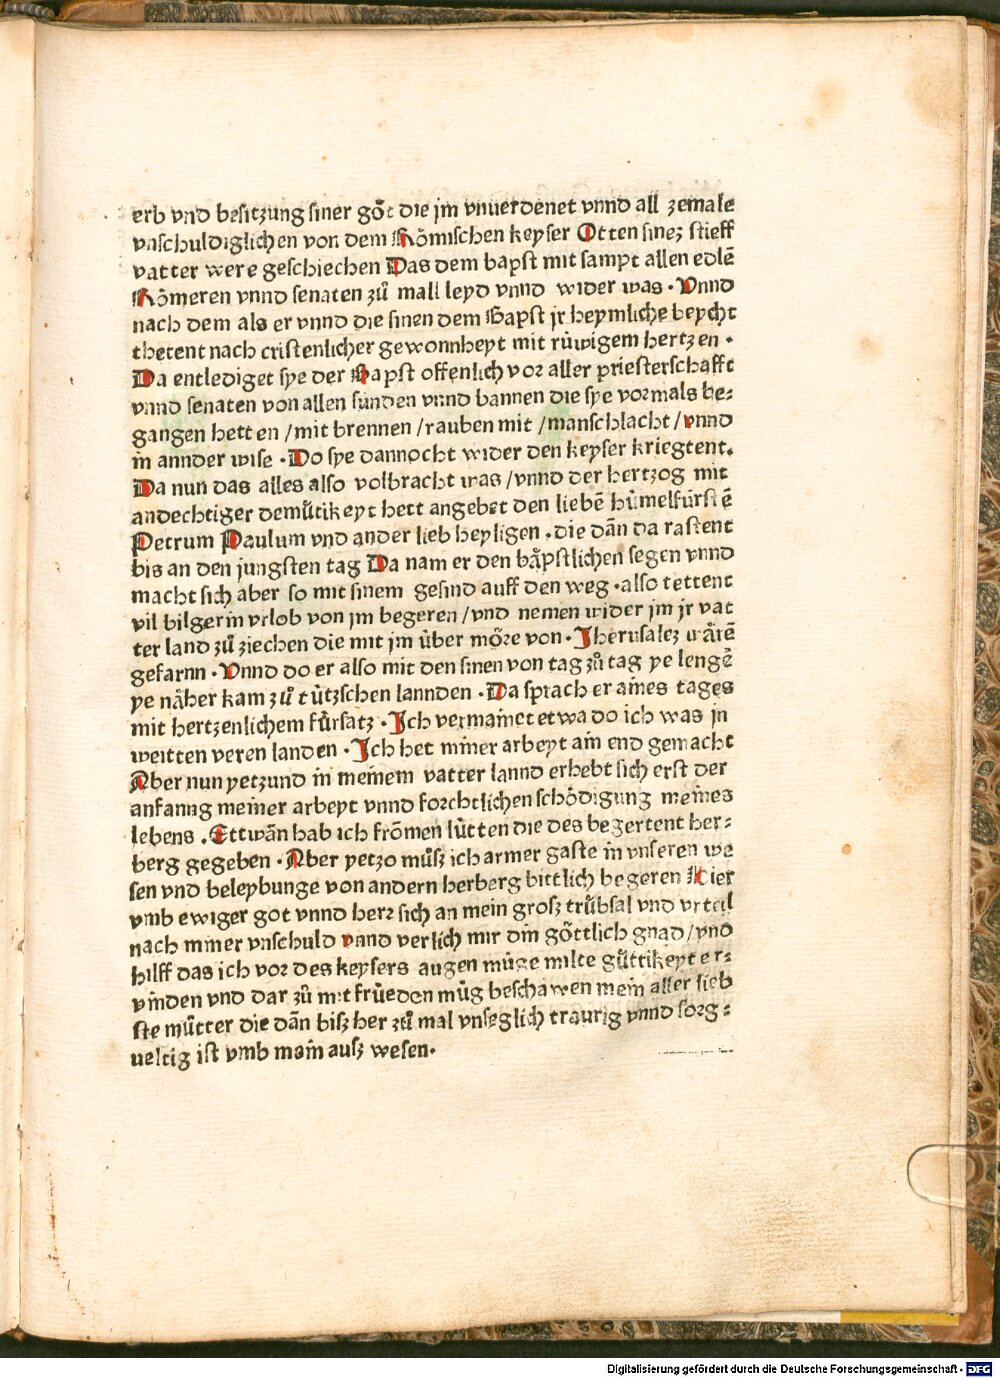 erb vnd besitzung siner gôt die jm vnuerdenet vnnd all zemale
vnschuldiglichen von dem Rômischen keyser Otten sinez stieff
vatter were geschiechen Das dem bapst mit sampt allen edlē
Rômeren vnnd senaten zů mall leyd vnnd wider was · Vnnd
nach dem als er vnnd die sinen dem Bapst jr heymliche beycht
thetent nach cristenlicher gewonnheyt mit růwigem hertzen ·
Da entlediget sye der Bapst offenlich vor aller priesterschafft
vnnd senaten von allen sünden vnnd bannen die sye vormals be⸗
gangen hetten / mit brennen / rauben mit / manschlacht / vnnd
in annder wise · Do sye dannocht wider den keyser kriegtent.
Da nun das alles also volbracht was / vnnd der hertzog mit
andechtiger demůtikeyt hett angebet den liebē hūmelfürstē
Petrum Paulum vnd ander lieb heyligen . die dān da rastent
bis an den jungsten tag Da nam er den bāpstlichen segen vnnd
macht sich aber so mit sinem gesind auff den weg · also tettent
vil bilgerin vrlob von jm begeren / vnd nemen wider jm jr vat
ter land zů ziechen die mit jm über môre von · Jherusalez wārē
gefarnn · Vnnd do er also mit den sinen von tag zů tag ye lengē
ye näher kam zů tützschen lannden · Da sprach er aines tages
mit hertzenlichem fürsatz · Ich vermainet etwa do ich was in
weitten veren landen · Ich het miner arbeyt ain end gemacht
Aber nun yetzund in meinem vatter lannd erhebt sich erst der
anfanng meiner arbeyt vnnd forchtlichen schôdigung meines
lebens . Ettwān hab ich frōmen lütten die des begertent her⸗
berg gegeben · Aber yetzo můsz ich armer gaste in vnseren we
sen vnd beleybunge von andern herberg bittlich begeren
vmb ewiger got vnnd herz sich an mein grosz trübsal vnd vrteil
nach miner vnschuld vnnd verlich mir din göttlich gnad / vnd
hilff das ich vor des keysers augen müge milte gůttikeyt er⸗
vinden vnd dar zů mit früeden müg beschawen mein aller lieb
ste můtter die dān bisz her zů mal vnseglich traurig vnnd sorg⸗
ueltig ist vmb main ausz wesen.
Digitalisierung gefördert durch die Deutsche Forschungsgemeinschaft · DFG